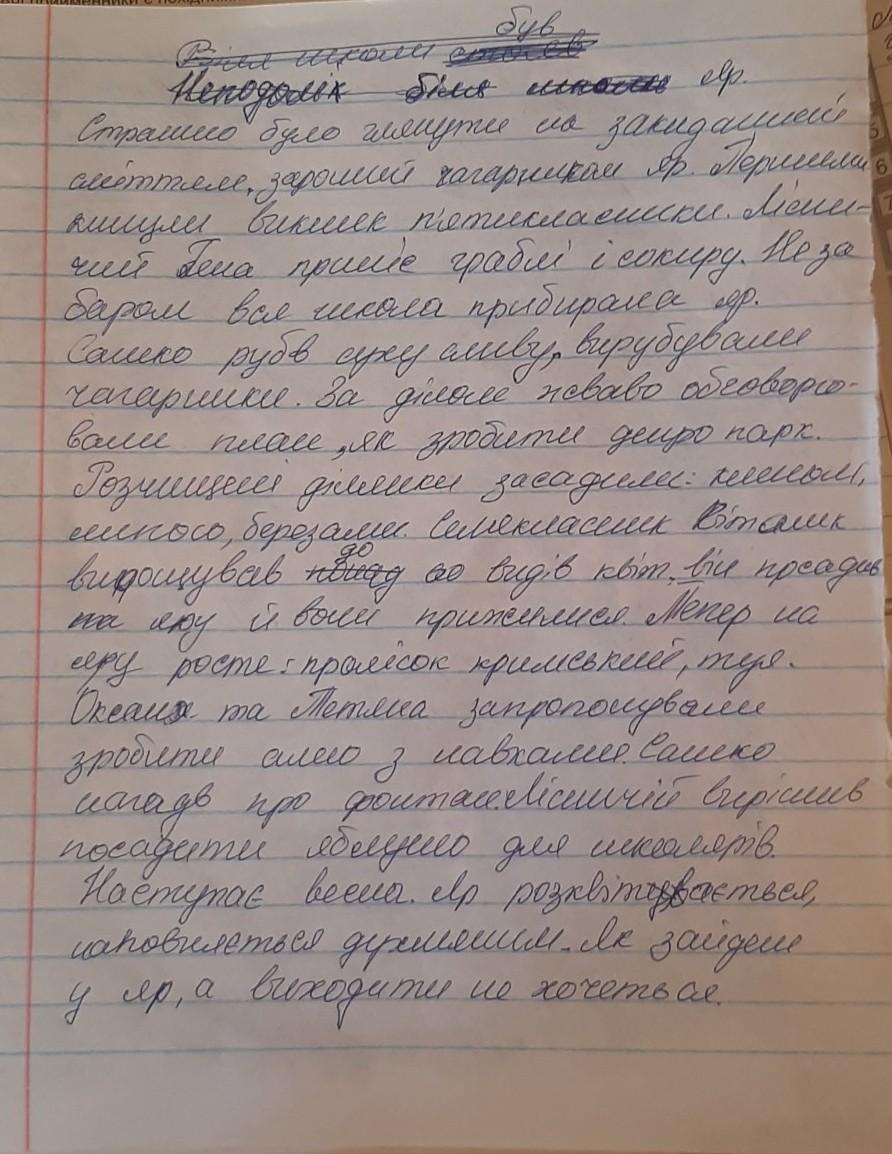 був
Біля школи стояв
Неподолік біля школи Яр.
Страшно було глянути на закиданией
сміттям, зароший чагарником яр. Першими
кинули виклик п'ятикласники. Лісни-
чий Гена приніс граблі і сокиру. Неза
баром вся школа прибирала яр.
Сашко рубв суху сливу, вирубували
чагарники. За ділом жваво обговорю-
вали план, як зробити диро парк.
Розчищені ділянки засадили: кленом,
липою, березами. Семикласник Віталик
вирощував понад до 20 видів квіт, він посадив
на яру й вони прижилися. Тепер на
яру росте: пролісок кримський, туя.
Оксана та Тетяна запропонували
зробити алею з лавками. Сашко
нагадв про фонтан. Лісничий вирішив
посадити яблуню для школярів.
Наступає весна. Яр розквітувається,
наповняється духмяним. Як зайдеш
у яр, а виходити не хочеться.